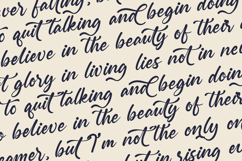 ver falling, bu
to quit talking and begin doing
believe in the beauty of their
t glory in living lies not in nev
to quit talking and begin doin
o believe in the beauty of their
eamer, but I'm not the only on
t in rising ev